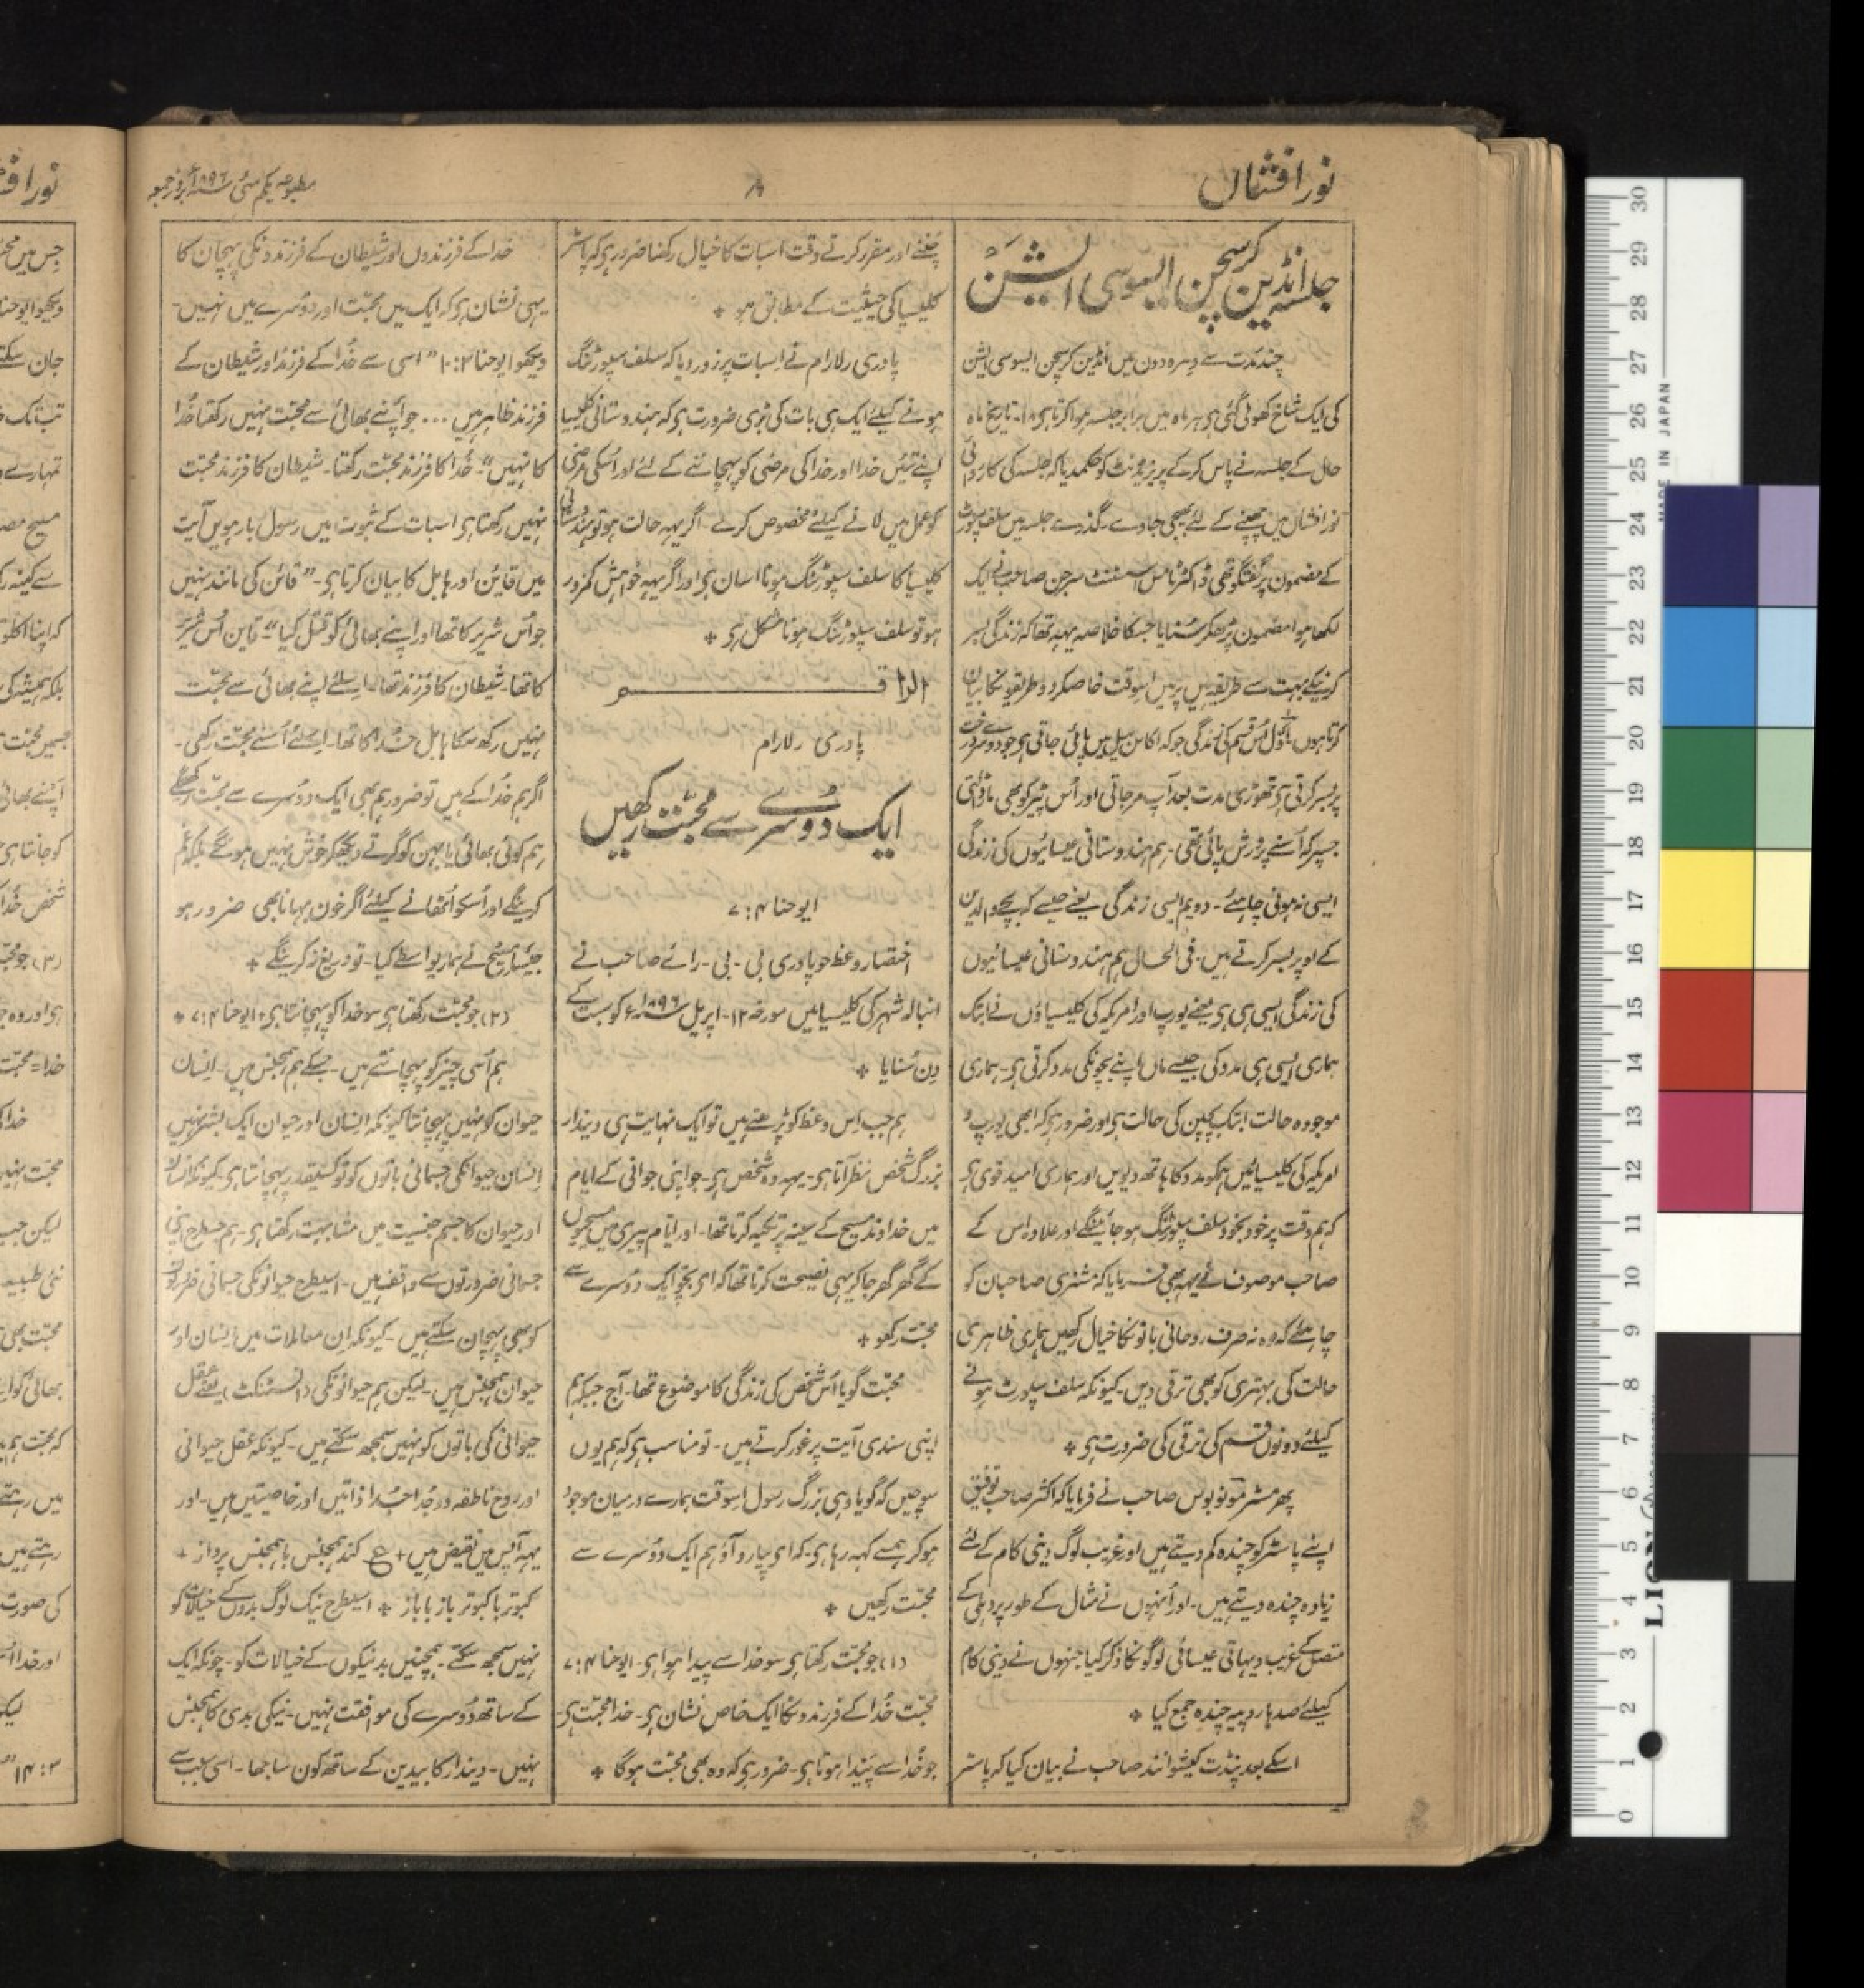 نورافشاں
۸
مطبوعہ یکم مئی سنہ ۱۸۹۶ء روز جمعہ
جلسہ انڈین کرسچن ایسوسی ایشن
چند مدت سے دہرہ دون میں انڈین کرسچن ایسوسی ایشن
کی ایک شاخ کھولی گئی ہی ہر ماہ میں برابر جلسہ ہوا کرتا ہی ۱۸۔ تاریخ ماہ
حال کے جلسہ نے پاس کر کے پریزیڈنٹ کو حکم دیا کہ جلسہ کی کارروائی
نورافشاں میں چھپنے کے لئے بھیجی جاوے۔ گذرے جلسہ میں سلف سپورٹ
کے مضمون پر گفتگو تھی ڈاکٹر ٹامس اسسٹنٹ سرجن صاحب نے ایک
لکھا ہوا مضمون پڑھکر سُنایا جسکا خلاصہ یہہ تھا کہ زندگی بسر
کرنیکے بہت سے طریقہ ہیں پر میں اسوقت خاصکر دو طریقونکا بیان
کرتا ہوں۔ اوّل اُس قسم کی زندگی جو کہ اکاس بیل میں پائی جاتی ہی جو دوسرے درخت
پر بسر کرتی ہی تھوڑی مدت بعد آپ مرجاتی اور اُس پیڑ کو بھی مار ڈالتی
جسپر کہ اُسنے پرورش پائی تھی۔ ہم ہندوستانی عیسائیوں کی زندگی
ایسی نہ ہونی چاہئے۔ دویم ایسی زندگی یعنے جیسے کہ بچے والدین
کے اوپر بسر کرتے ہیں۔ فی الحال ہم ہندوستانی عیسائیوں
کی زندگی ایسی ہی ہی یعنے یورپ اور امریکہ کی کلیسیاؤں نے ابتک
ہماری ایسی ہی مدد کی جیسے ماں اپنے بچونکی مدد کرتی ہی۔ ہماری
موجودہ حالت ابتک بچپن کی حالت ہی اور ضرور ہی کہ ابھی یورپ و
امریکہ کی کلیسیائیں ہمکو مدد کا ہاتھ دیویں اور ہماری امید قوی ہی
کہ ہم وقت پر خود بخود سلف سپورٹنگ ہو جائینگے اور علاوہ اس کے
صاحب موصوف نے یہہ بھی فرمایا کہ مشنری صاحبان کو
چاہئے کہ وہ نہ صرف روحانی باتونکا خیال رکھیں ہماری ظاہری
حالت کی بہتری کو بھی ترقی دیں۔ کیونکہ سلف سپورٹ ہونے
کیلئے دونوں قسم کی ترقی کی ضرورت ہی +
پھر مسٹر صاحب نے فرمایا کہ اکثر صاحب توفیق
اپنے پاسٹر کو چندہ کم دیتے ہیں اور غریب لوگ دینی کام کے لئے
زیادہ چندہ دیتے ہیں۔ اور اُنہوں نے مثال کے طور پر دہلی کے
متصل کے غریب دیہاتی عیسائی لوگونکا ذکر کیا جنہوں نے دینی کام
کیلئے صدہا روپیہ چندہ جمع کیا +
اسکے بعد پنڈت کیشوانند صاحب نے بیان کیا کہ پاسٹر
چننے اور مقرر کرتے وقت اسبات کا خیال رکھنا ضرور ہی کہ پاسٹر
کلیسیا کی حیثیت کے مطابق ہو +
پادری رلارام نے اسبات پر زور دیا کہ سلف سپورٹنگ
ہونے کیلئے ایک ہی بات کی بڑی ضرورت ہی کہ ہندوستانی کلیسیا
اپنے تئیں خدا اور خدا کی مرضی کو پہچاننے کے لئے اور اُسکی مرضی
کو عمل میں لانے کیلئے مخصوص کرے۔ اگر یہہ حالت ہو تو ہندوستانی
کلیسیا کا سلف سپورٹنگ ہونا اسان ہی اور اگر یہہ خواہش کمزور
ہو تو سلف سپورٹنگ ہونا مشکل ہی +
الراقم
پادری رلارام
ایک دوسرے سے محبّت رکھیں
ایوحنا ۷:۴
اختصار وعظ جو پادری بی۔ بی۔ رائے صاحب نے
انبالہ شہر کی کلیسیا میں مورخہ ۱۲۔ اپریل سنہ ۱۸۹۶ء کو سبت کے
دن سُنایا +
ہم جب اس وعظ کو پڑھتے ہیں تو ایک نہایت ہی دیندار
بزرگ شخص نظر آتا ہی۔ یہہ وہ شخص ہی۔ جو اپنی جوانی کے ایام
میں خداوند مسیح کے سینہ پر تکیہ کرتا تھا۔ اور ایّام پیری میں مسیحیوں
کے گھر گھر جا کر یہی نصیحت کرتا تھا کہ ای بچّو ایک دُوسرے سے
محبّت رکھو +
محبّت گویا اُس شخص کی زندگی کا موضوع تھا۔ آج جبکہ ہم
اپنی سندی آیت پر غور کرتے ہیں۔ تو مناسب ہی کہ ہم یوں
سوچیں کہ گویا وہی بزرگ رسول اسوقت ہمارے درمیان موجود
ہو کر ہمسے کہہ رہا ہی۔ کہ ای پیارو آؤ ہم ایک دوُسرے سے
محبّت رکھیں +
(۱) جو محبّت رکھتا ہی سو خدا سے پیدا ہوا ہی۔ ایوحنا ۷:۴
محبّت خُدا کے فرزندونکا ایک خاص نشان ہی۔ خدا محبّت ہی۔
جو خُدا سے پیدا ہوتا ہی۔ ضرور ہی کہ وہ بھی محبّت ہوگا +
خدا کے فرزندوں اور شیطان کے فرزندونکی پہچان کا
یہی نشان ہی کہ ایک میں محبّت اور دوسرے میں نہیں۔
دیکھو ایوحنا ۱۰:۳ ”اسی سے خُدا کے فرزند اور شیطان کے
فرزند ظاہر ہیں ... جو اپنے بھائی سے محبّت نہیں رکھتا خُدا
کا نہیں“۔ خُدا کا فرزند محبّت رکھتا۔ شیطان کا فرزند محبّت
نہیں رکھتا ہی اسبات کے ثبوت میں رسول بارہویں آیت
میں قاین اور ہابل کا بیان کرتا ہی۔ ”قائن کی مانند نہیں
جو اُس شریر کا تھا اور اپنے بھائی کو قتل کیا“۔ قاین اُس شریر
کا تھا۔ شیطان کا فرزند تھا۔ اسلئے اپنے بھائی سے محبّت
نہیں رکھ سکا ہابل خُدا کا تھا۔ اسلئے اُسنے محبّت رکھی۔
اگر ہم خُدا کے ہیں تو ضرور ہم بھی ایک دوُسرے سے محبّت رکھینگے
ہم کوئی بھائی یا بہن کو گرتے دیکھکر خوش نہیں ہونگے بلکہ غم
کرینگے اور اُسکو اُٹھانے کیلئے اگر خون بہانا بھی ضرور ہو
جیسا مسیح نے ہمارے واسطے کیا۔ تو دریغ نہ کرینگے +
(۲) جو محبّت رکھتا ہی سو خدا کو پہچانتا ہی + ایوحنا ۷:۴ +
ہم اُسی چیز کو پہچانتے ہیں۔ جسکے ہم ہمجنس ہیں۔ انسان
حیوان کو نہیں پہچانتا کیونکہ اِنسان اور حیوان ایک بشر نہیں
اِنسان حیوانکی جسمانی باتوں کو تو کسیقدر پہچانتا ہی۔ کیونکہ انسان
اور حیوان کا جسم جنسیت میں مشابہت رکھتا ہی۔ ہم جسطرح اپنی
جسمانی ضرورتوں سے واقف ہیں۔ اسیطرح حیوانونکی جسمانی ضرورتوں
کو بھی پہچان سکتے ہیں۔ کیونکہ اِن معاملات میں اِنسان اور
حیوان ہمجنس ہیں۔ لیکن ہم حیوانونکی (انسٹنکٹ) یعنے عقل
حیوانی کی باتوں کو نہیں سمجھ سکتے ہیں۔ کیونکہ عقل حیوانی
اور روح ناطقہ دو جُدا جُدا ذاتیں اور خاصیتیں ہیں۔ اور
یہہ آپس میں نقیض ہیں + ع کند ہمجنس باہمجنس پرواز +
کبوتر با کبوتر باز با باز + اسیطرح نیک لوگ بدوں کے خیالات کو
نہیں سمجھ سکتے۔ ہمچنیں بد نیکوں کے خیالات کو۔ چونکہ ایک
کے ساتھ دُوسرے کی موافقت نہیں۔ نیکی بدی کا ہمجنس
نہیں۔ دیندار کا بیدین کے ساتھ کون ساجھا۔ اسی سبب سے
MADE IN JAPAN
LION
0 1 2 3 4 5 6 7 8 9 10 11 12 13 14 15 16 17 18 19 20 21 22 23 24 25 26 27 28 29 30